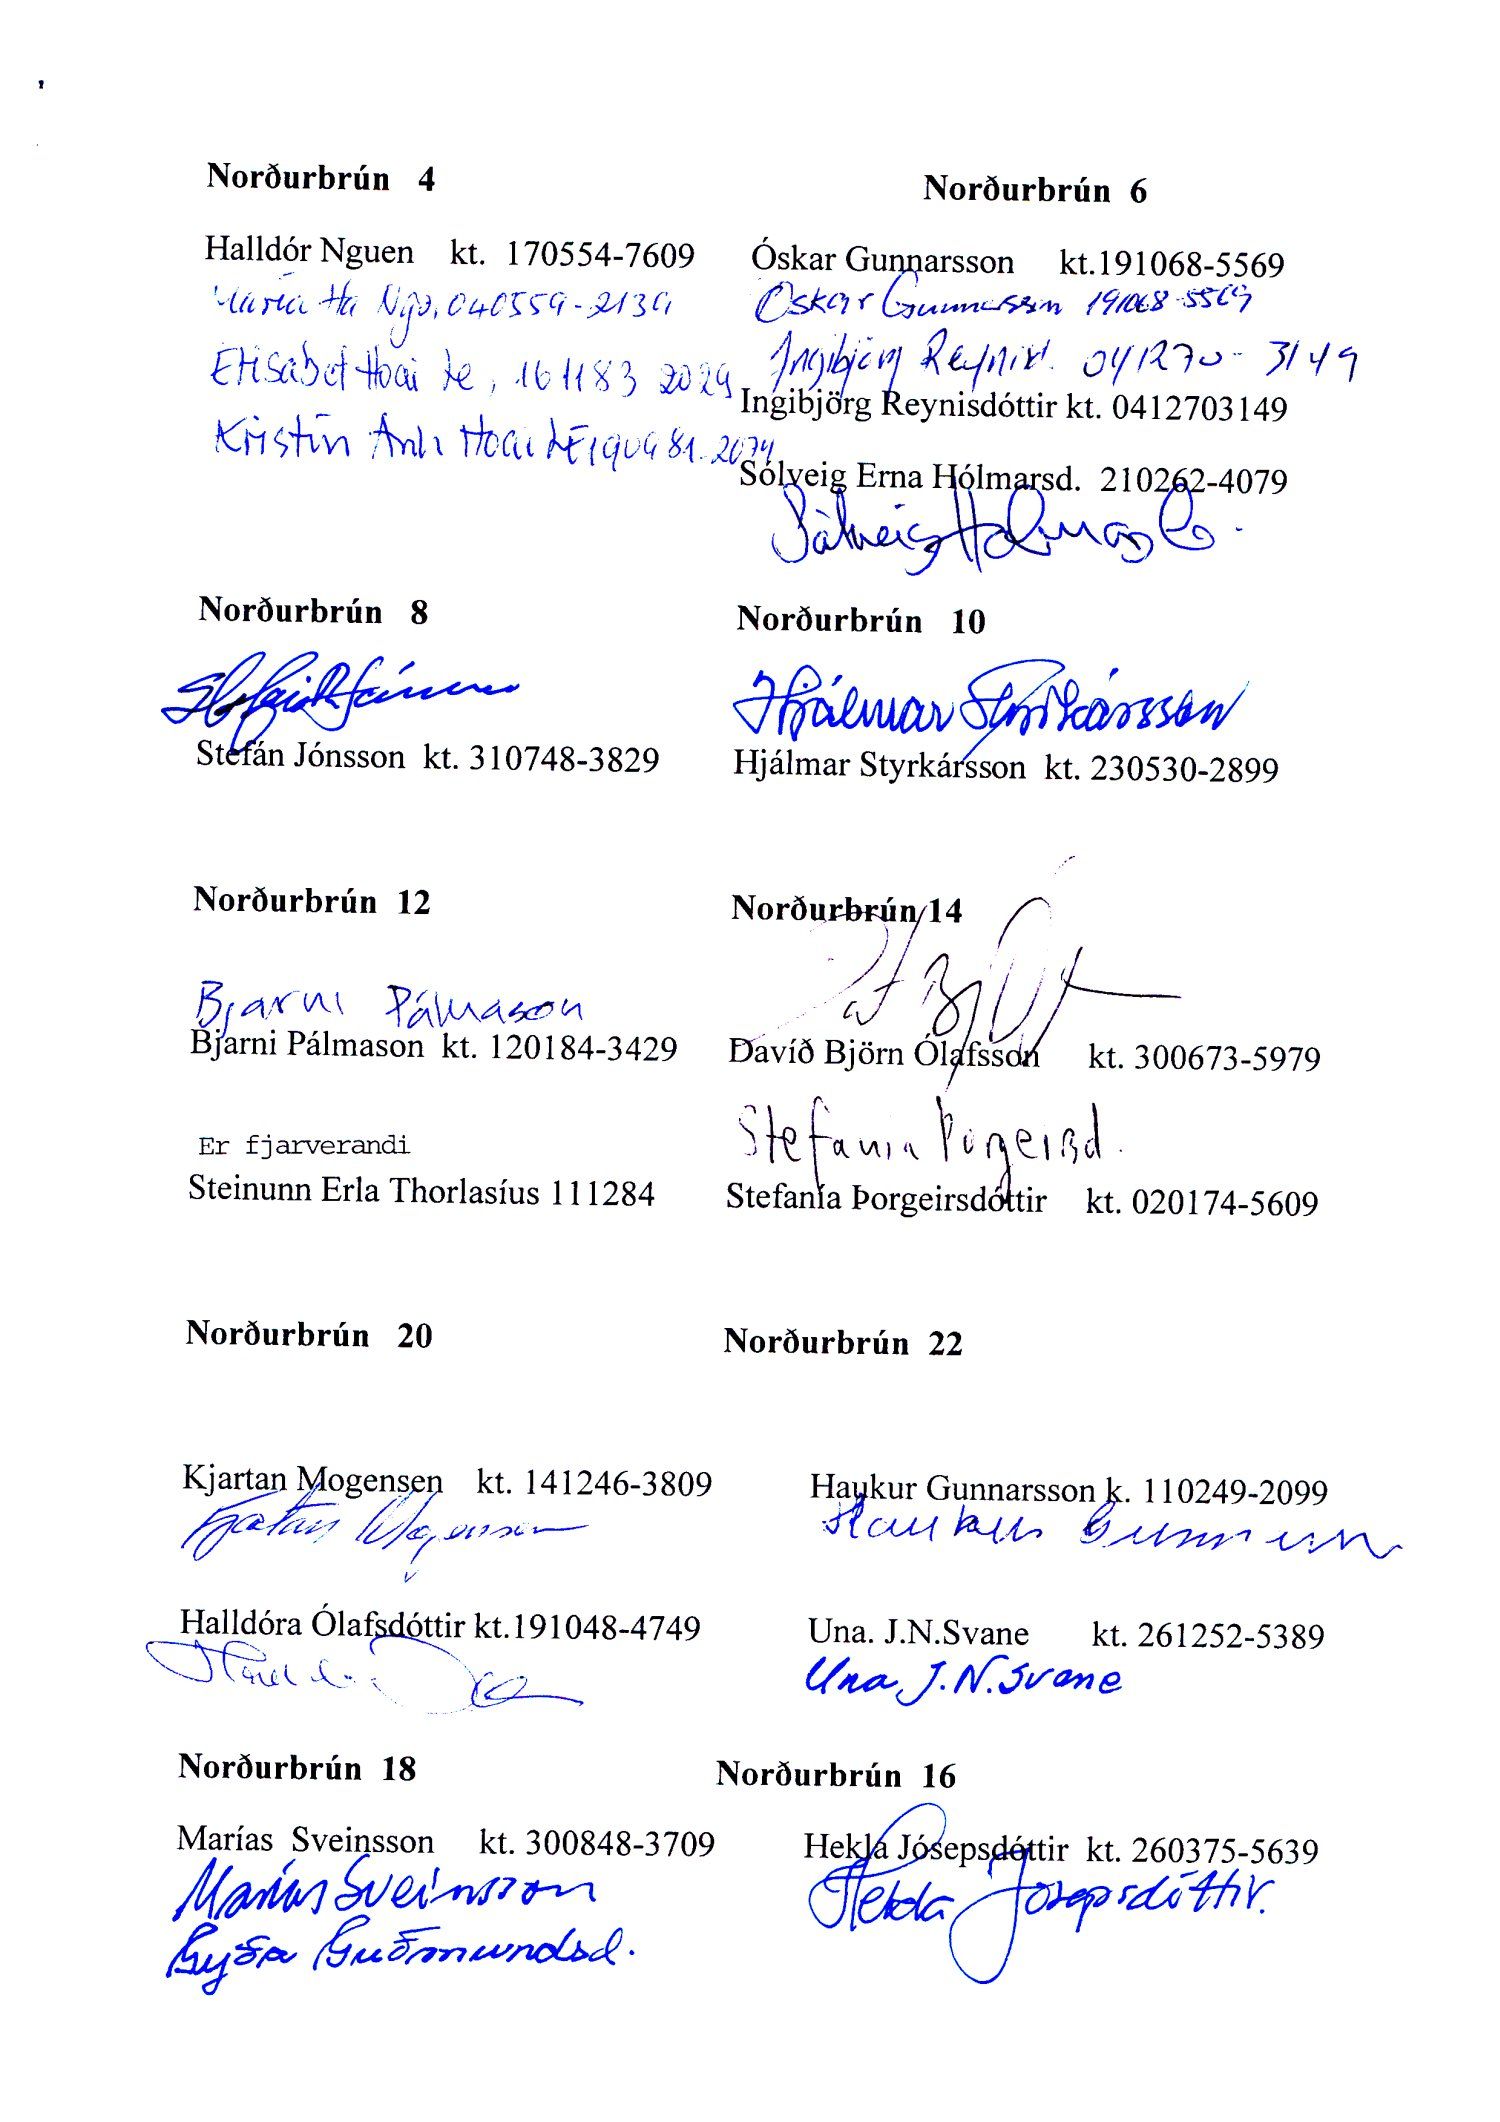 Norðurbrún 4
Halldór Nguen kt. 170554-7609
María Ha Ngo, 040559-2139
Elisabet Hoai Le, 161183 2029
Kristín Anh Hoai LE 190981-2079
Norðurbrún 6
Óskar Gunnarsson kt.191068-5569
Óskar Gunnarsson 191068-5569
Ingibjörg Reynisd. 041270-3149
Ingibjörg Reynisdóttir kt. 0412703149
Sólveig Erna Hólmarsd. 210262-4079
Norðurbrún 8
Stefán Jónsson kt. 310748-3829
Norðurbrún 10
Hjálmar Styrkársson
Hjálmar Styrkársson kt. 230530-2899
Norðurbrún 12
Bjarni Pálmason
Bjarni Pálmason kt. 120184-3429
Er fjarverandi
Steinunn Erla Thorlasíus 111284
Norðurbrún 14
Davíð Björn Ólafsson kt. 300673-5979
Stefanía Þorgeirsd.
Stefanía Þorgeirsdóttir kt. 020174-5609
Norðurbrún 20
Kjartan Mogensen kt. 141246-3809
Kjartan Mogensen
Halldóra Ólafsdóttir kt.191048-4749
Norðurbrún 22
Haukur Gunnarsson k. 110249-2099
Haukur Gunnarsson
Una. J.N.Svane kt. 261252-5389
Una J.N.Svane
Norðurbrún 18
Marías Sveinsson kt. 300848-3709
Marías Sveinsson
Guðmundsd.
Norðurbrún 16
Hekla Jósepsdóttir kt. 260375-5639
Hekla Jósepsdóttir.